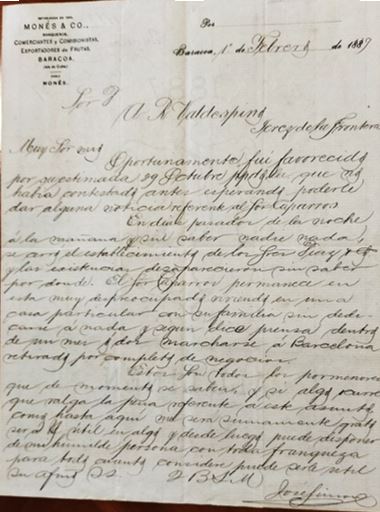 MONÉS & Co.,
BANQUEROS,
COMERCIANTES Y COMISIONISTAS,
EXPORTADORES DE FRUTAS,
BARACOA,
(Isla de Cuba.)
CABLE
MONÉS.
Por
Baracoa, 1º de Febrero de 1887
Sor D
A. R. Valdespino
Jerez de la Frontera
Muy Sor mio
Oportunamente fuí favorecido
por su estimada 29 Octubre ppdo que no
habia contestado antes esperando poderle
dar alguna noticia referente al Sor Aparron
En dias pasados de la noche
á la mañana y sin saber nadie nada,
se cerró el establecimiento de los Sres Diaz y Cª
y las existencias desaparecieron sin saber
por donde. El Sor Aparron permanece en
esta muy despreocupado viviendo en una
casa particular con su familia sin dedi-
carse á nada y segun dice piensa dentro
de un mes y dos marcharse á Barcelona
retirado por completo de negocios.
Estos son todos los pormenores
que de momento se saben, y si algo ocurre
que valga la pena referente á este asunto,
como hasta aqui me sera sumamente grato
ser á V. útil en algo y desde luego puede disponer
de mi humilde persona con toda franqueza
para todo cuanto considere puede serle útil
su afmo S S
Q B S M
José Simon